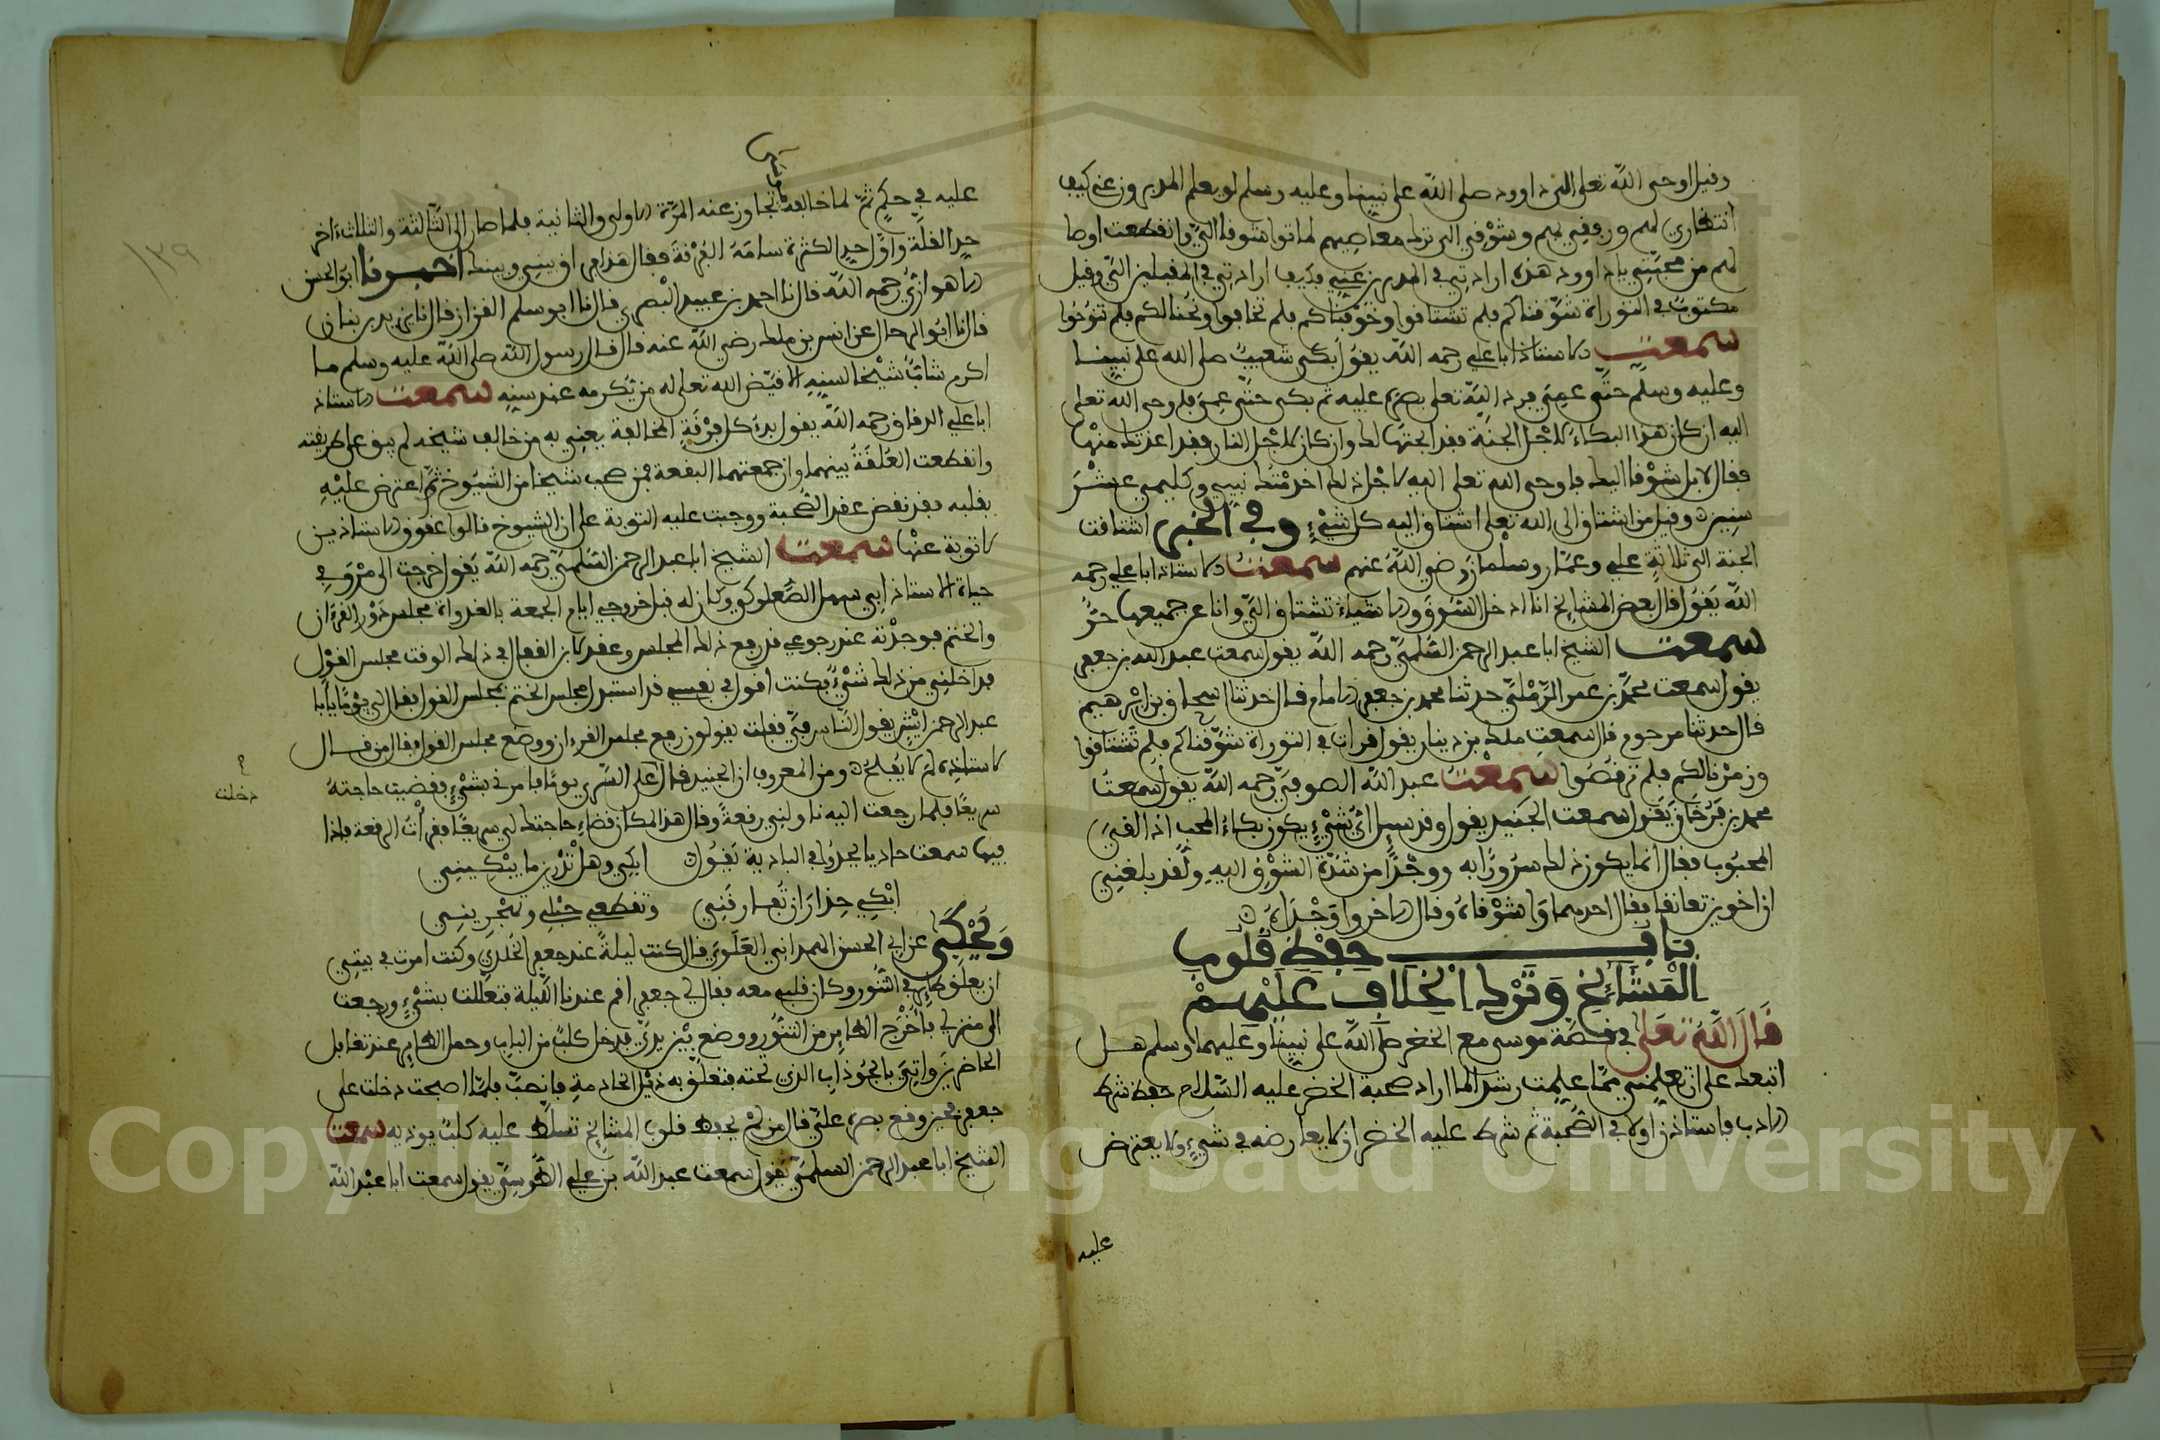 وقيل اوحى الله تعلى الى داوود صلى الله على نبينا وعليه وسلم لو يعلم المدبرون عني كيف
انتظاري لهم ورفقي بهم وشوقي الى ترك معاصيهم لماتوا شوقا الي وانقطعت اوصا
لهم من محبتي يا داوود هذه ارادتي في المدبرين عني فكيف ارادتي في المقبلين الي وقيل
مكتوب في التوراة شوقناكم فلم تشتاقوا وخوفناكم فلم تخافوا ونحنا لكم فلم تنوحوا
سمعت الاستاذ ابا علي رحمه الله يقول بكى شعيب صلى الله على نبينا
وعليه وسلم حتى عمي فرد الله تعلى بصره عليه ثم بكى حتى عمي فاوحى الله تعلى
اليه ان كان هذا البكاء لاجل الجنة فقد ابحتها لك وان كان لاجل النار فقد اعذتك منها
فقال لا بل شوقا اليك فاوحى الله تعلى اليه لاجل ذلك اخدمتك نبيي وكليمي عشر
سنين وقيل من اشتاق الى الله تعلى اشتاق اليه كل شيء وفي الخبر اشتاقت
الجنة الى ثلاثة علي وعمار وسلمان رضي الله عنهم سمعت الاستاذ ابا علي رحمه
الله يقول قال بعض المشايخ انا ادخل السوق والاشياء تشتاق الي وانا عن جميعها حر
سمعت الشيخ ابا عبد الرحمن السلمي رحمه الله يقول سمعت عبد الله بن جعفر
يقول سمعت محمد بن عمر الرملي حدثنا محمد بن جعفر الامام قال حدثنا اسحاق بن ابرهيم
قال حدثنا مرحوم قال سمعت ملك بن دينار يقول قرات في التوراة شوقناكم فلم تشتاقوا
وزمرنا لكم فلم ترقصوا سمعت عبد الله الصوفي رحمه الله يقول سمعت
محمد بن فرخان يقول سمعت الجنيد يقول وقد سيل اي شيء يكون بكاء المحب اذا لقي
المحبوب فقال انما يكون ذلك سرورا به ووجدا من شدة الشوق اليه ولقد بلغني
ان اخوين تعانقا فقال احدهما واشوقاه وقال الاخر واوجداه
باب حفظ قلوب
المشايخ وترك الخلاف عليهم
قال الله تعلى في قصة موسى مع الخضر صلى الله على نبينا وعليهما وسلم هل
اتبعك على ان تعلمني مما علمت رشدا لما اراد صحبة الخضر عليه السلام حفظ شرط
الادب فاستاذن اولا في الصحبة ثم شرط عليه الخضر ان لا يعارضه في شيء ولا يعترض
عليه
عليه في حكم ثم لما خالفه تجاوز عنه المرة الاولى والثانية فلما صار الى الثالثة والثلاث اخر
حد القلة واول حد الكثرة سامه الفرقة فقال هذا فراق بيني وبينك اخبرنا ابو الحسن
الاهوازي رحمه الله قال نا احمد بن عبيد البصري قال نا ابو سلم القزاز قال نا يزيد بن بنان
قال نا ابو الرحال عن انس بن ملك رضي الله عنه قال قال رسول الله صلى الله عليه وسلم ما
اكرم شاب شيخا لسنه الا قيض الله تعلى له من يكرمه عند سنه سمعت الاستاذ
ابا علي الدقاق رحمه الله يقول بدء كل فرقة المخالفة يعني به من خالف شيخه لم يبق على طريقته
وانقطعت العلقة بينهما وان جمعتهما البقعة فمن صحب شيخا من الشيوخ ثم اعترض عليه
بقلبه فقد نقض عقد الصحبة ووجبت عليه التوبة على ان الشيوخ قالوا عقوق الاستاذين
لا توبة عنها سمعت الشيخ ابا عبد الرحمن السلمي رحمه الله يقول خرجت الى مرو في
حياة الاستاذ ابي سهل الصعلوكي وكان له قبل خروجي ايام الجمعة بالغدواة مجلس دور القرءان
والختم فوجدته عند رجوعي قد رفع ذلك المجلس وعقد لابن العقابي في ذلك الوقت مجلس القول
فداخلني من ذلك شيء فكنت اقول في نفسي قد استبدل مجلس الختم بمجلس القول فقال لي يوما يا ابا
عبد الرحمن ايش يقول الناس في فقلت يقولون رفع مجلس القرءان ووضع مجلس القول فقال من قال
لاستاذه لم لا يفلح ومن المعروف ان الجنيد قال دخلت على السري يوما فامرني بشيء فقضيت حاجته
سريعا فلما رجعت اليه ناولني رقعة وقال هذا لمكان قضاء حاجتك لي سريعا فقرات الرقعة فاذا
فيها سمعت حاديا يحدو في البادية يقول ابكي وهل تدرين ما يبكيني
ابكي حذارا ان تفارقيني وتقطعي حبلي وتهجريني
ويحكى عن ابي الحسن الهمداني العلوي قال كنت ليلة عند جعفر الخلدي وكنت امرت في بيتي
ان يعلق طاير في التنور وكان قلبي معه فقال لي جعفر اقم عندنا الليلة فتعللت بشيء ورجعت
الى منزلي فاخرج الطاير من التنور ووضع بين يدي فدخل كلب من الباب وحمل الطاير عند تغافل
الحاضرين واتي بالجوذاب الذي تحته فتعلق به ذيل الخادمة فانصب فلما اصبحت دخلت على
جعفر فحين وقع بصره علي قال من لم يحفظ قلوب المشايخ تسلط عليه كلب يوذيه سمعت
الشيخ ابا عبد الرحمن السلمي يقول سمعت عبد الله بن علي الطوسي يقول سمعت ابا عبد الله
دخلت
١٣٩
Copyright © King Saud University